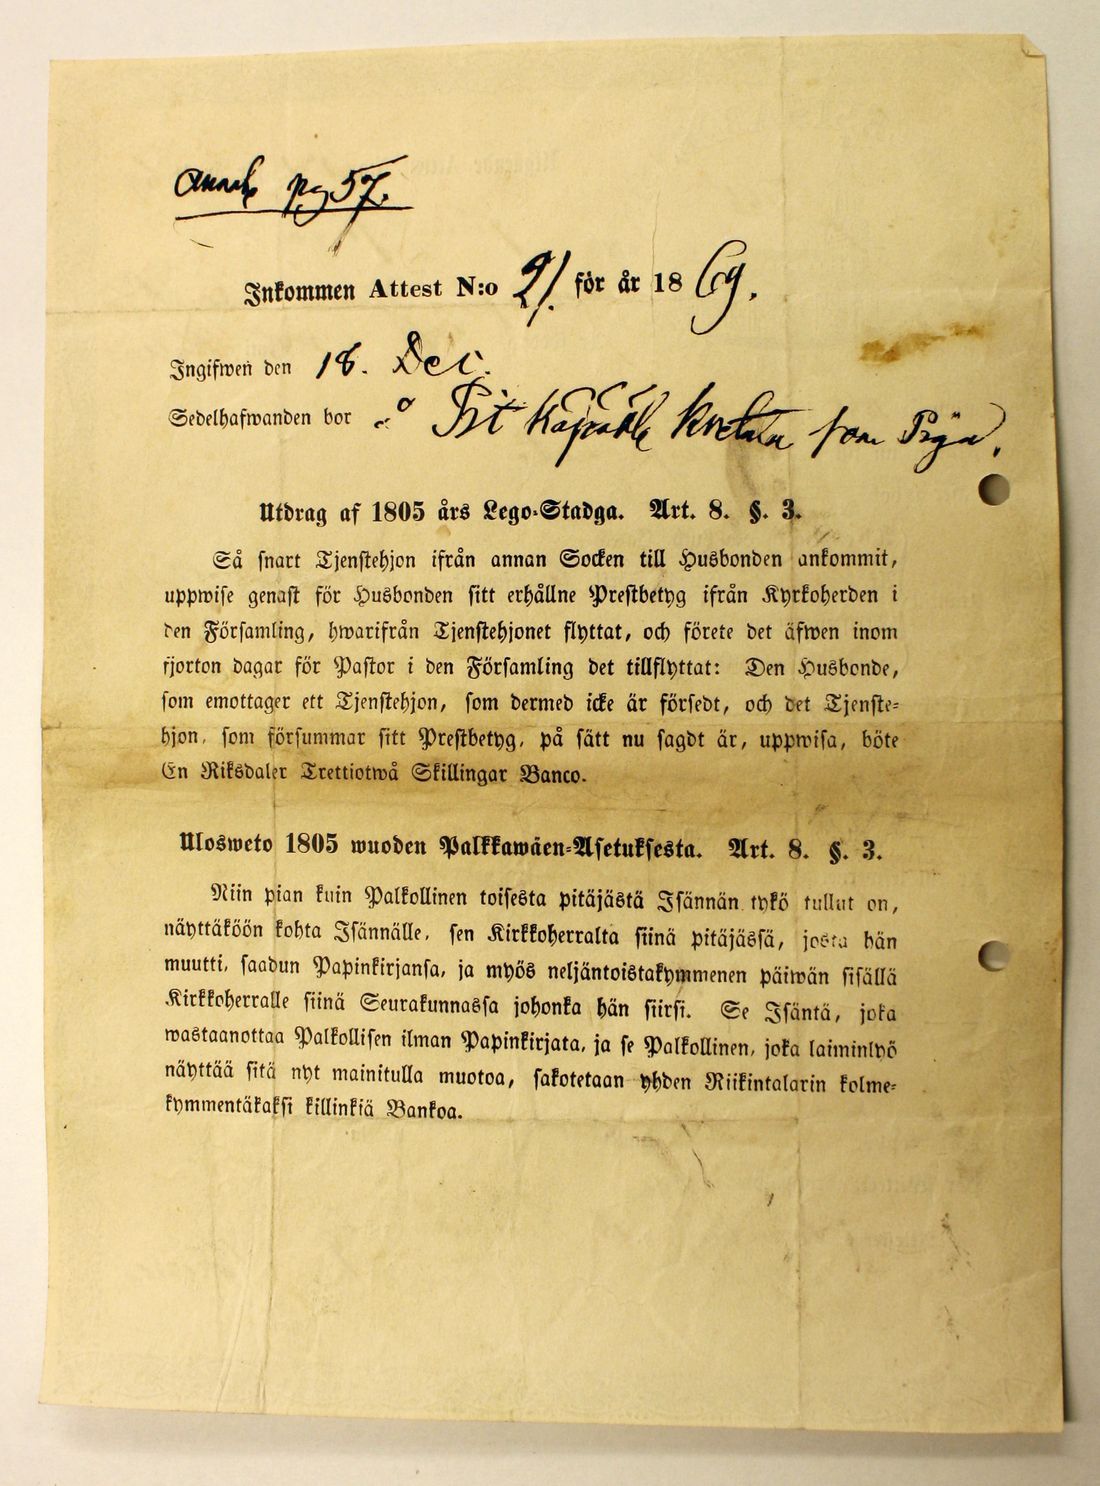 pg 57.
Inkommen Attest N:o 21. för år 1869.
Ingifwen den 18. Dec.
Sedelhafwanden bor som Piga.
Utdrag af 1805 års Lego-Stadga. Art. 8. §. 3.
Så snart Tjenstehjon ifrån annan Socken till Husbonden ankommit,
uppwise genast för Husbonden sitt erhållne Prestbetyg ifrån Kyrkoherden i
den Församling, hwarifrån Tjenstehjonet flyttat, och förete det äfwen inom
fjorton dagar för Pastor i den Församling det tillflyttat: Den Husbonde,
som emottager ett Tjenstehjon, som dermed icke är försedt, och det Tjenste-
hjon, som försummar sitt Prestbetyg, på sätt nu sagdt är, uppwisa, böte
En Riksdaler Trettiotwå Skillingar Banco.
Ulosweto 1805 wuoden Palkkawäen-Asetuksesta. Art. 8. §. 3.
Niin pian kuin Palkollinen toisesta pitäjästä Isännän tykö tullut on,
näyttäköön kohta Isännälle, sen Kirkkoherralta siinä pitäjässä, josta hän
muutti, saadun Papinkirjansa, ja myös neljäntoistakymmenen päiwän sisällä
Kirkkoherralle siinä Seurakunnassa johonka hän siirsi. Se Isäntä, joka
wastaanottaa Palkollisen ilman Papinkirjata, ja se Palkollinen, joka laiminlyö
näyttää sitä nyt mainitulla muotoa, sakotetaan yhden Riikintalarin kolme-
kymmentäkaksi killinkiä Bankoa.